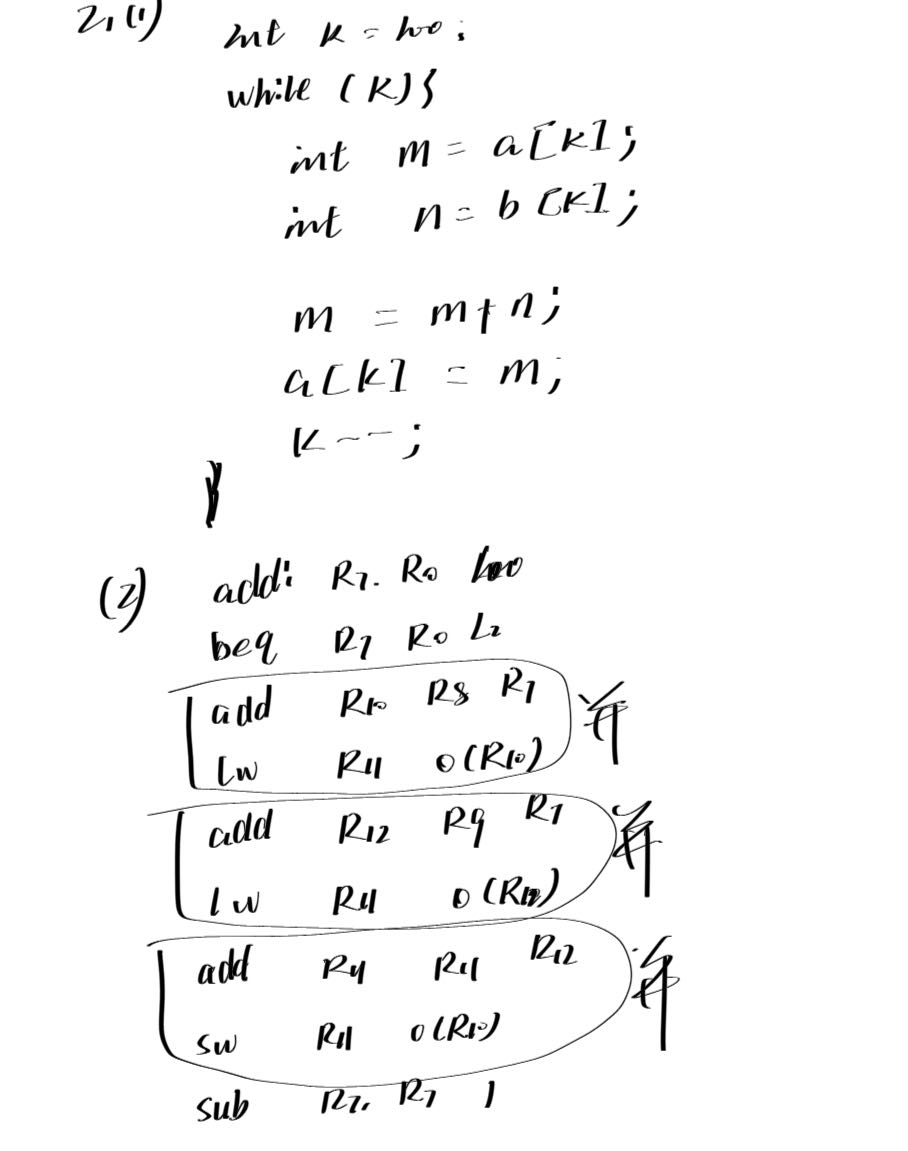 2,(1) int k = 100;
while (k){
int m = a[k];
int n = b[k];
m = m+n;
a[k] = m;
k--;
}
(2) addi R7. R0 100
beq R7 R0 L2
add R10 R8 R7
lw R11 0(R10) 并
add R12 R9 R7
lw R11 0(R12) 并
add R11 R11 R12
sw R11 0(R10) 并
sub R7, R7 1